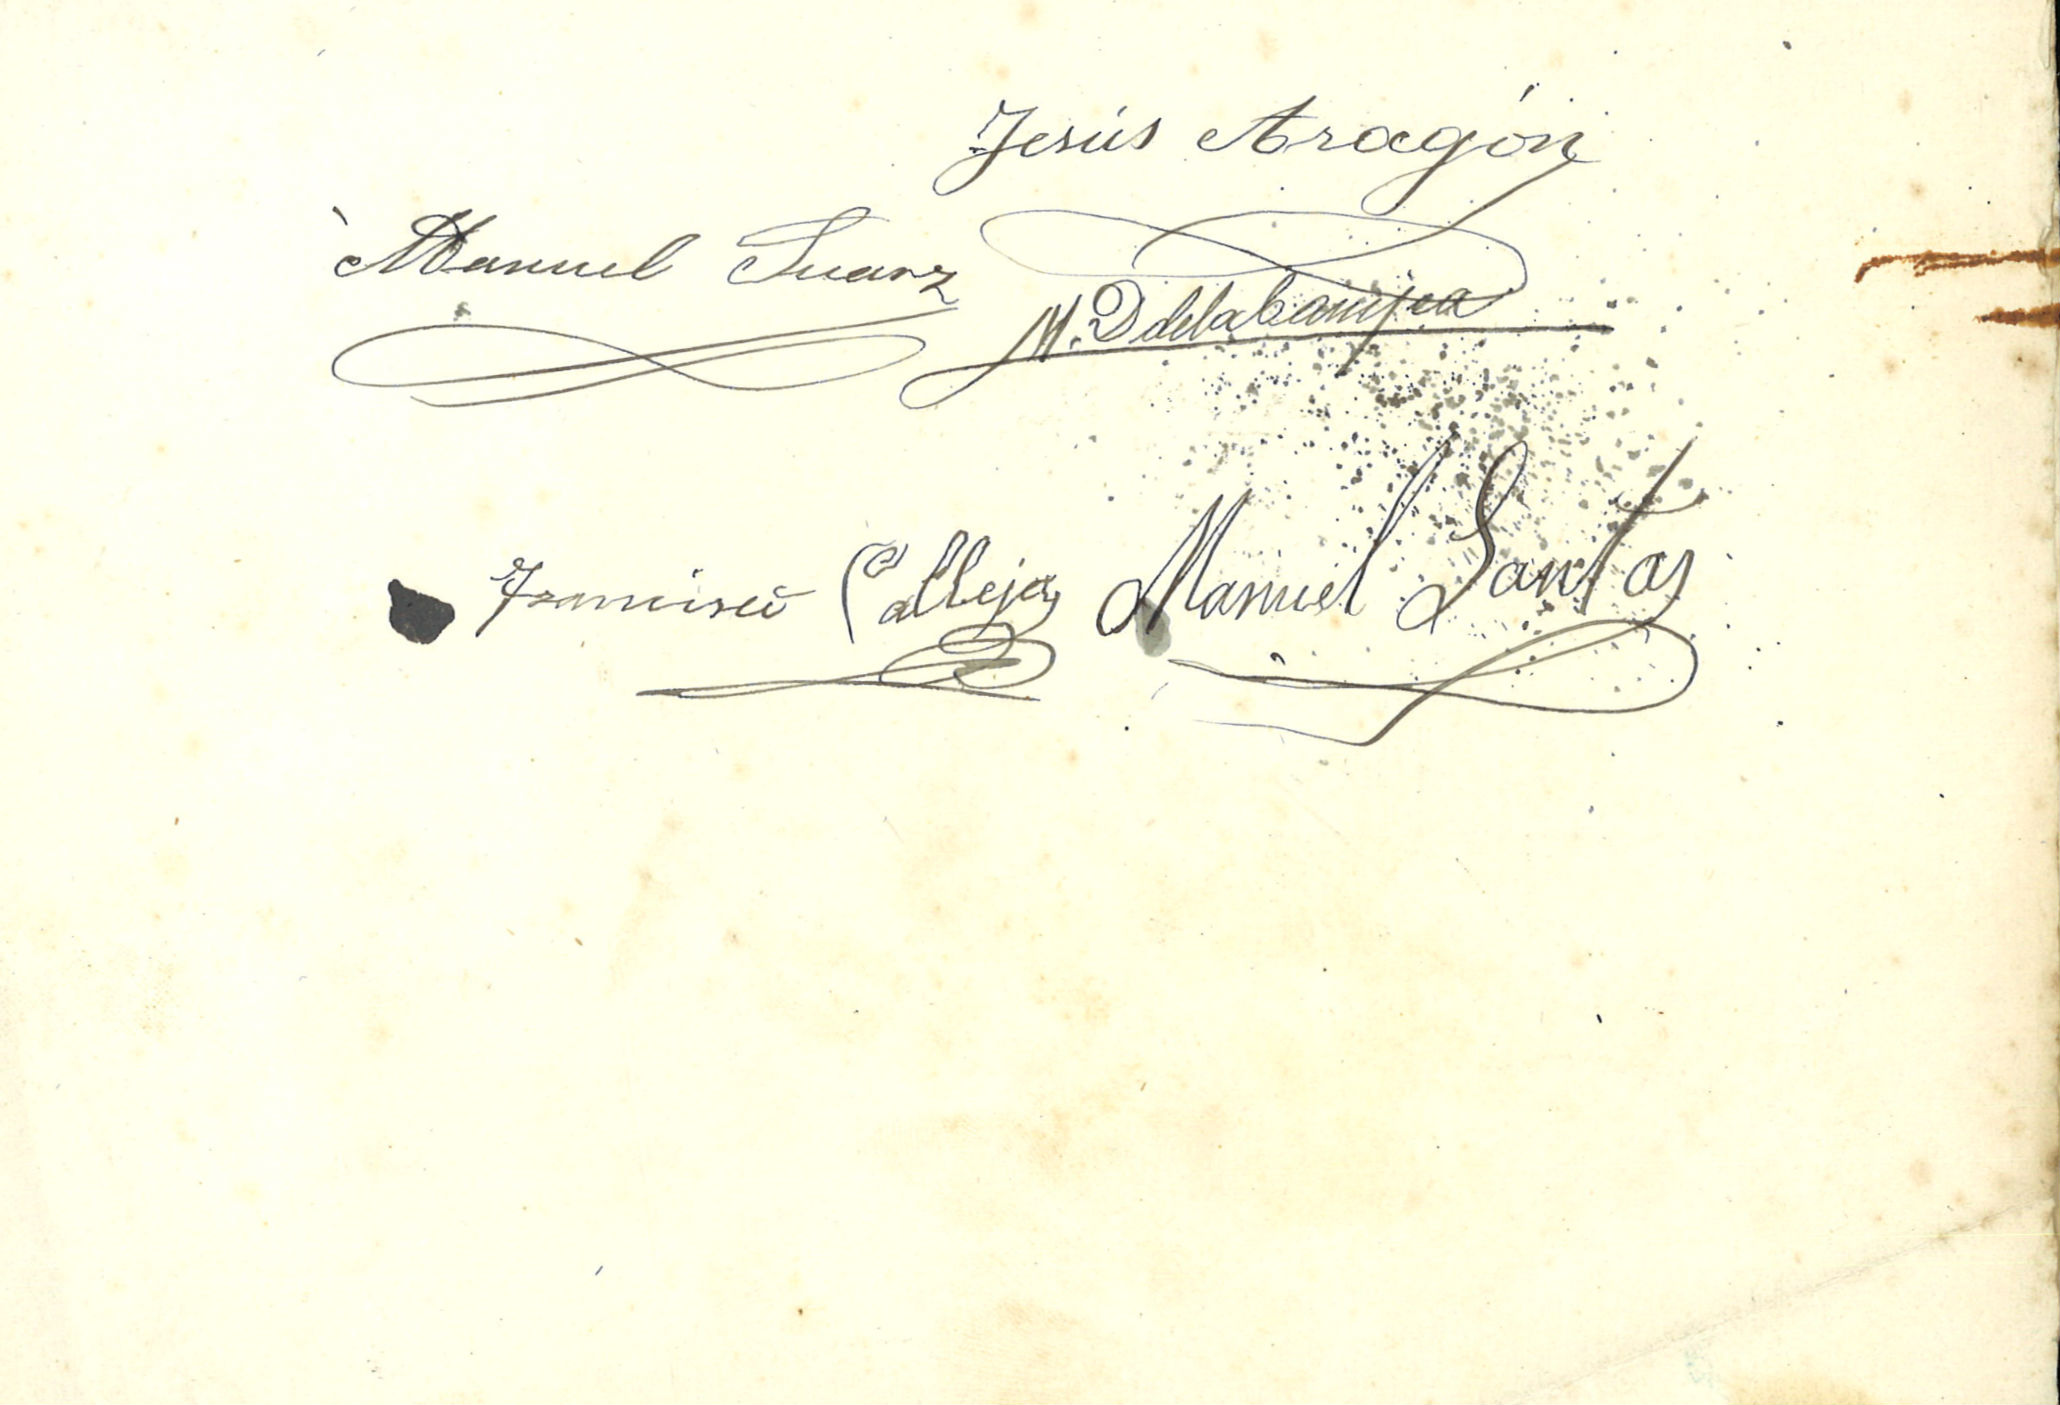 Jesús Aragón
Manuel Suarz
M. D de la
Francisco Calleja Manuel Santos